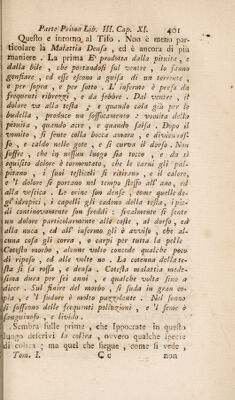 Parte Prima Lib. III. Cap. XI. 401
Questo e intorno al Tifo. Non è meno par-
ticolare la Malattia Densa, ed è ancora di più
maniere. La prima E' prodotta dalla pituita, e
dalla bile, che portandosi sul ventre, lo fanno
gonfiare, ed esse escono a guisa di un torrente
e per sopra, e per sotto. L' infermo è preso da
frequenti ribrezzi, e da febbre. Del ventre, il
dolore va alla testa; e quando cala giù per le
budella, produce un soffocamento: vomita della
pituita, quando acida, e quando salsa. Dopo il
vomito, si sente colla bocca amara, e diviene ros-
so, e caldo nelle gote, e si curva il dorso. Non
soffre, che in nessun luogo sia tocco, e da sì
squisito dolore è tormentato, che le carni gli pal-
pitano, i suoi testicoli si ritirano, e il calore,
e 'l dolore si portano nel tempo stesso all' ano, ed
alla vescica. Le orine son dense, come quelle de-
gl' idropici, i capelli gli cadono della testa, i pie-
di continovamente son freddi: finalmente si sente
un dolore particolarmente alle coste, al dorso, ed
alla nuca, ed all' infermo gli è avviso, che al-
cuna cosa gli corra, e carpi per tutta la pelle.
Cotesto morbo, alcune volte concede qualche poco
di riposo, ed alle volte no. La cotenna della te-
sta si fa rossa, e densa. Cotesta malattia mede-
sima dura per sei anni, e qualche volta sino a
dieci. Sul finire del morbo, si suda in gran co-
pia, e 'l sudore è molto puzzolente. Nel sonno
si soffrono delle frequenti polluzioni, e 'l seme è
sanguinoso, e livido.
Sembra sulle prime, che Ippocrate in questo
luogo descrivi la colera, ovvero qualche specie
di colera; ma quel che siegue, come si vede,
Tom. I. C c non